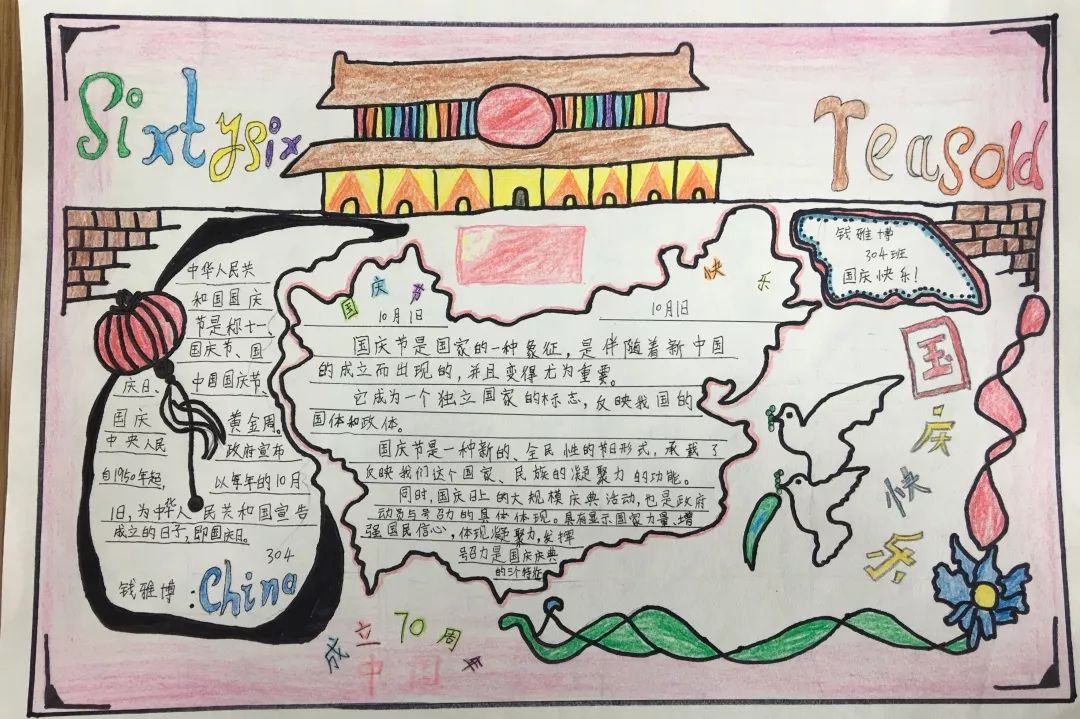 Sixtysix
Teasold
中华人民共
和国国庆
节是称十一、
国庆节、国
庆日、中国国庆节、
国庆黄金周。
中央人民政府宣布
自1950年起,以每年的10月
1日,为中华人民共和国宣告
成立的日子,即国庆日。
304
钱雅博:China
国庆节快乐
10月1日 10月1日
国庆节是国家的一种象征,是伴随着新中国
的成立而出现的,并且变得尤为重要。
它成为一个独立国家的标志,反映我国的
国体和政体。
国庆节是一种新的、全民性的节日形式,承载了
反映我们这个国家、民族的凝聚力的功能。
同时,国庆日上的大规模庆典活动,也是政府
动员与号召力的具体体现。具有显示国家力量、增
强国民信心,体现凝聚力,发挥
号召力是国庆庆典
的三个特征
钱雅博
304班
国庆快乐!
国庆快乐
成立70周年
中国